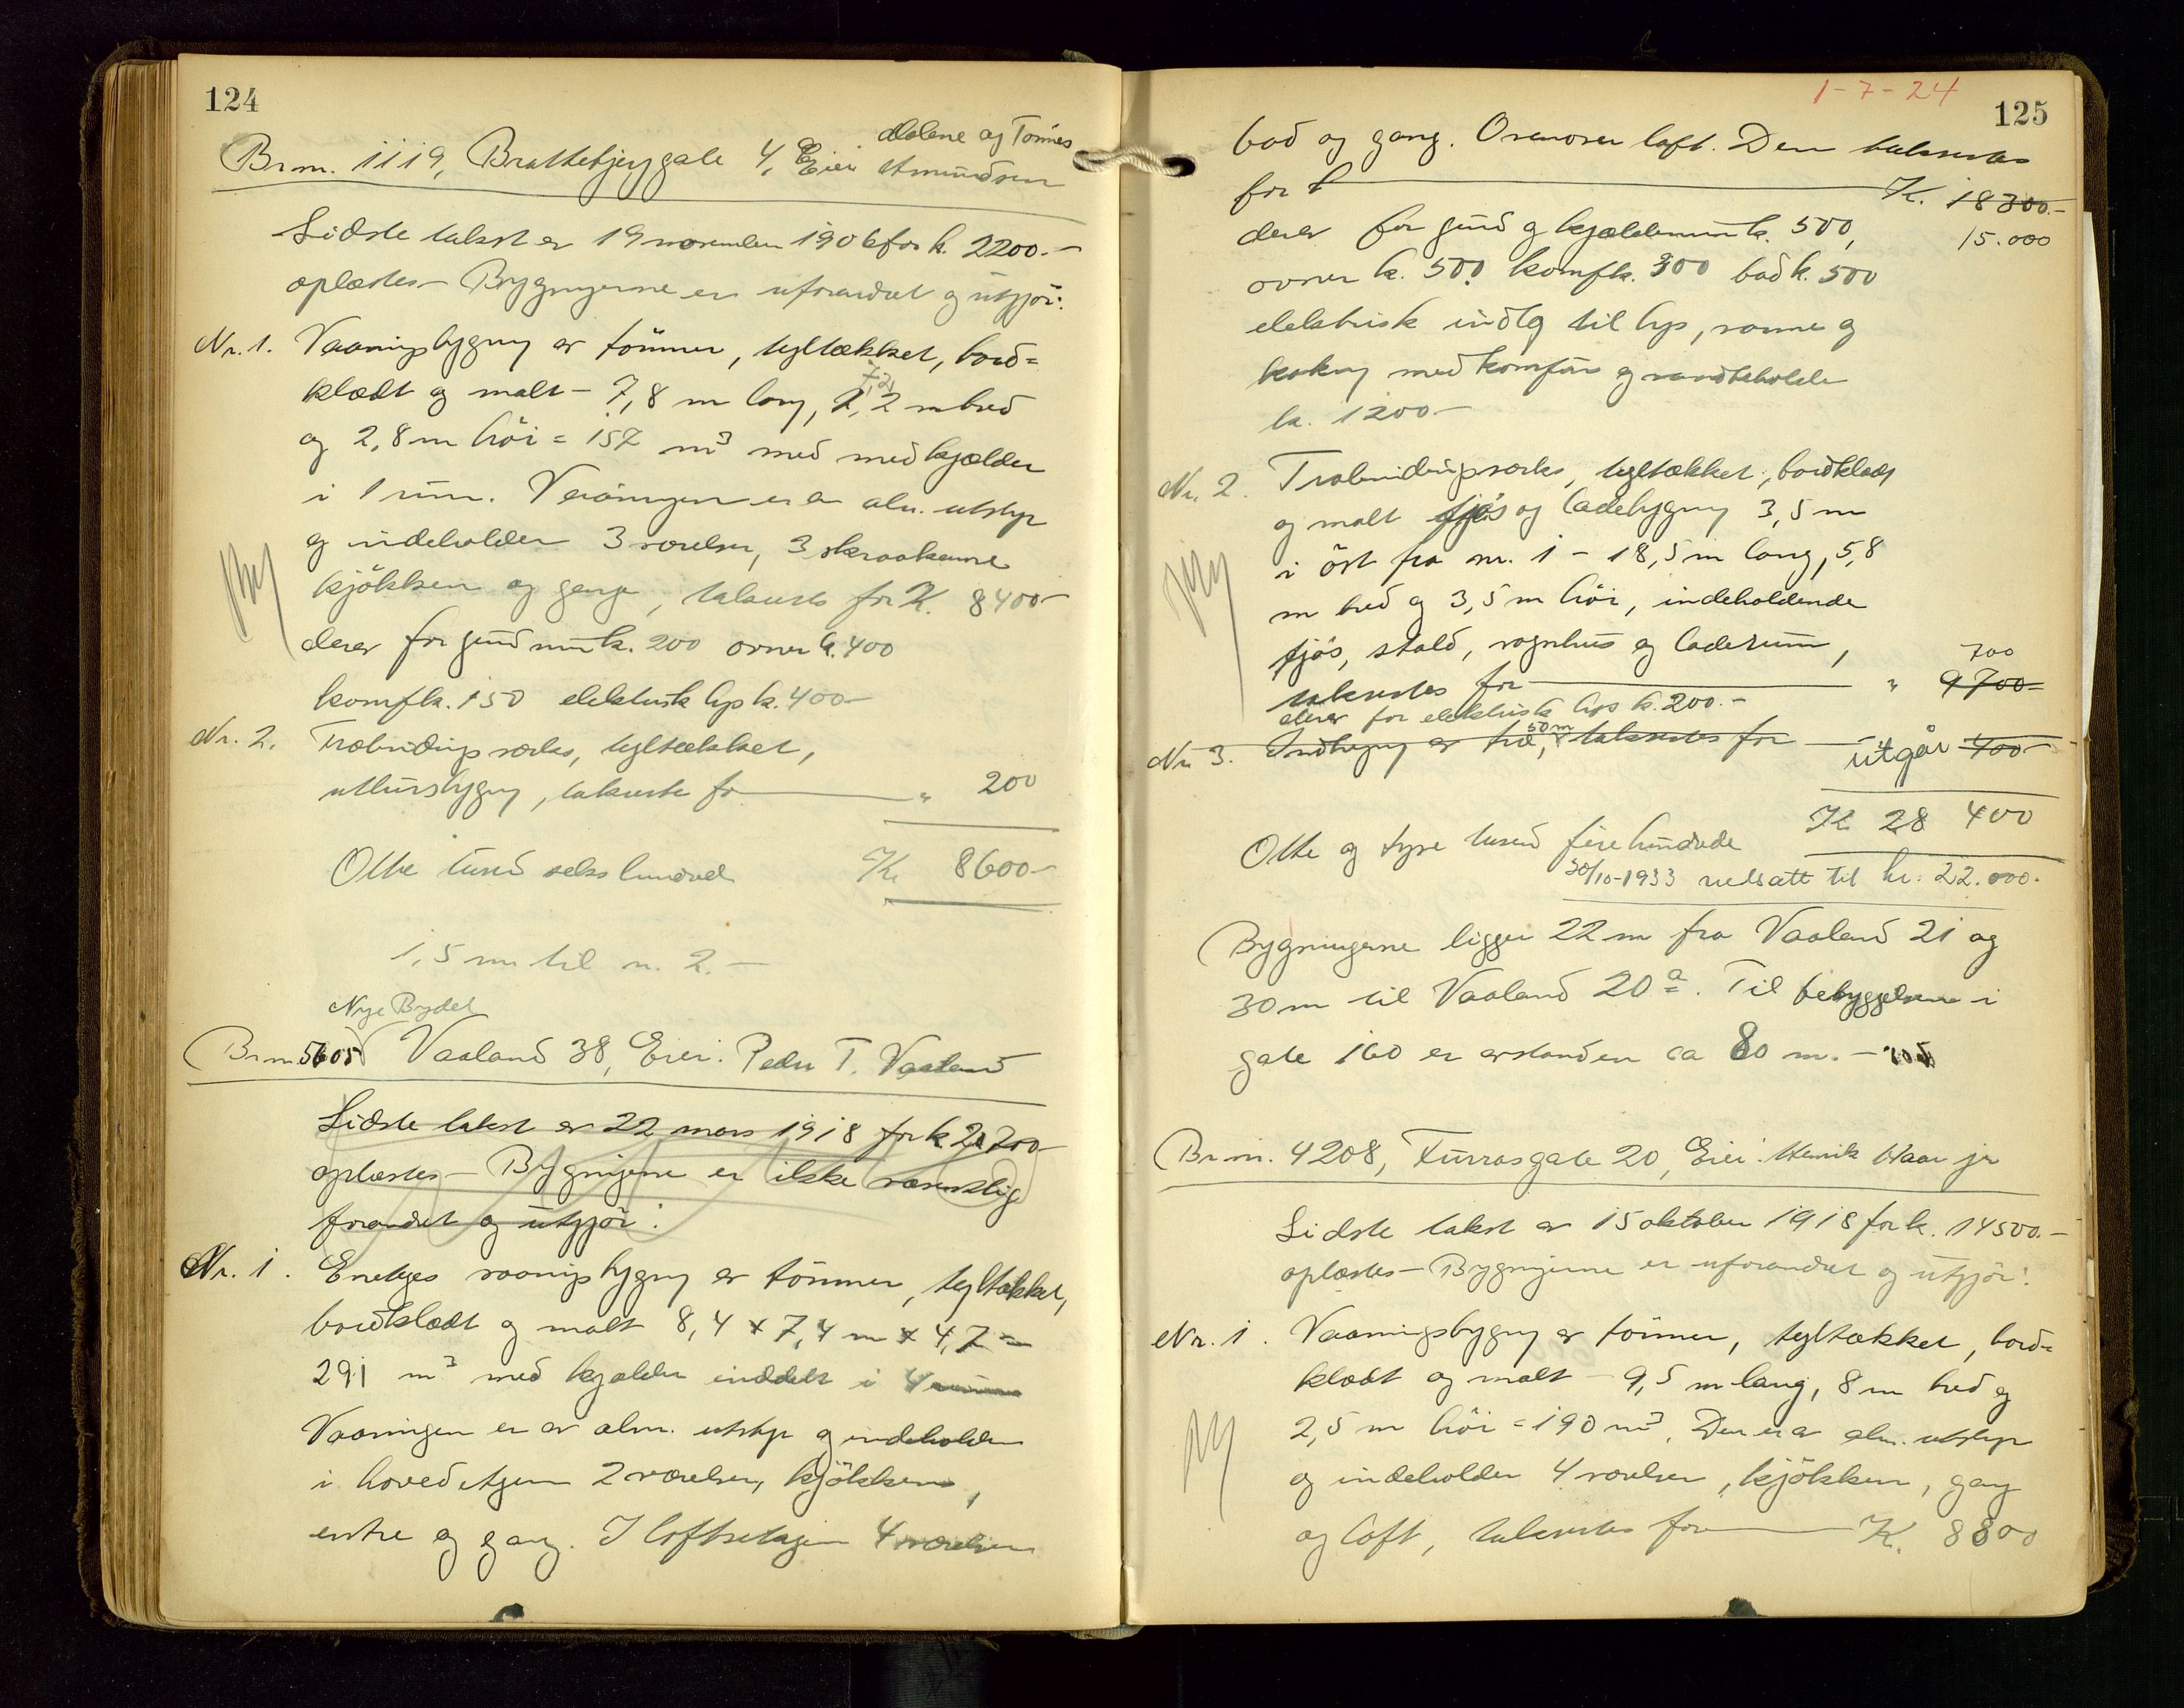 124
Malene og Tönnes
Br.nr. 1119, Brattebjerggate 4, Eier Amundsen
Sidste takst er 19 november 1906 for k. 2200.-
oplæstes - Bygningerne er uforandret og utgjör:
Nr. 1. Vaaningsbygning er tömmer, tegltækket, bord=
7,2
klædt og malt - 7,8 m lang, 7,2 m bred
og 2,8 m höi = 157 m³ med med kjælder
i 1 rum. Vaaningen er av alm. utstyr
og indeholder 3 værelser, 3 skraakamre
kjökken og gange, takseres for K. 8400-
derav for grundmur k. 200 ovner k. 400
komf k. 150 elektrisk lys k. 400-
Nr. 2. Træbindingsverks, tegltækket,
uthusbygning, takseres for " 200
Otte tusind seks hundrede Kr 8600-
1,5 m til nr. 2.-
Nye Bydel
Br.nr. 5605 Vaaland 38, Eier: Peder T. Vaaland
Sidste takst er 22 mars 1918 for k 21700-
oplæstes - Bygningerne er ikke væsentlig
forandret og utgjör:
Nr. 1. Enetages vaaningsbygning er tömmer, tegltækket,
bordklædt og malt 8,4 x 7,4 m x 4,7 =
291 m³ med kjælder inddelt i 4 rum
Vaaningen er av alm. utstyr og indeholder
i hovedetagen 2 værelser, kjökken,
entre og gang. I loftsetagen 4 værelser
1-7-24
125
bad og gang. Ovenover loft. Den takseres
for K. 18300.-
derav for grund og kjældermur k. 500, 15.000
ovner k. 500 komf k. 300 bad k. 500
elektrisk indlg til lys, varme og
kokning med komfür og vandbeholder
k. 1200-
Nr. 2. Træbindingsverks, tegltækket, bordklædt
og malt fjös og ladebygning 3,5 m
i öst fra nr. 1 - 18,5 m lang, 5,8
m bred og 3,5 m höi, indeholdende
fjös, stald, vognhus og laderum,
700
takseres for " 9700-
derav for elektrisk lys k. 200.-
50 m
Nr 3. Indhegning er træ, takseres for utgår 400-
Kr 28 400
Otte og tyve tusend fire hundrede
30/10-1933 nedsatt til kr: 22.000.
Bygningerne ligger 22 m fra Vaaland 21 og
30 m til Vaaland 20 a. Til bebyggelsen i
gate 160 er avstanden ca 80 m. -
Br.nr. 4208, Furrasgate 20, Eier: Henrik Waar jr
Sidste takst er 15 oktober 1918 for k. 14500.-
oplæstes - Bygningerne er uforandret og utgjör:
Nr. 1. Vaaningsbygning er tömmer, tegltækket, bord=
klædt og malt - 9,5 m lang, 8 m bred og
2,5 m höi = 190 m³. Den er av alm. utstyr
og indeholder 4 værelser, kjökken, gang
og loft, takseres for K. 8800